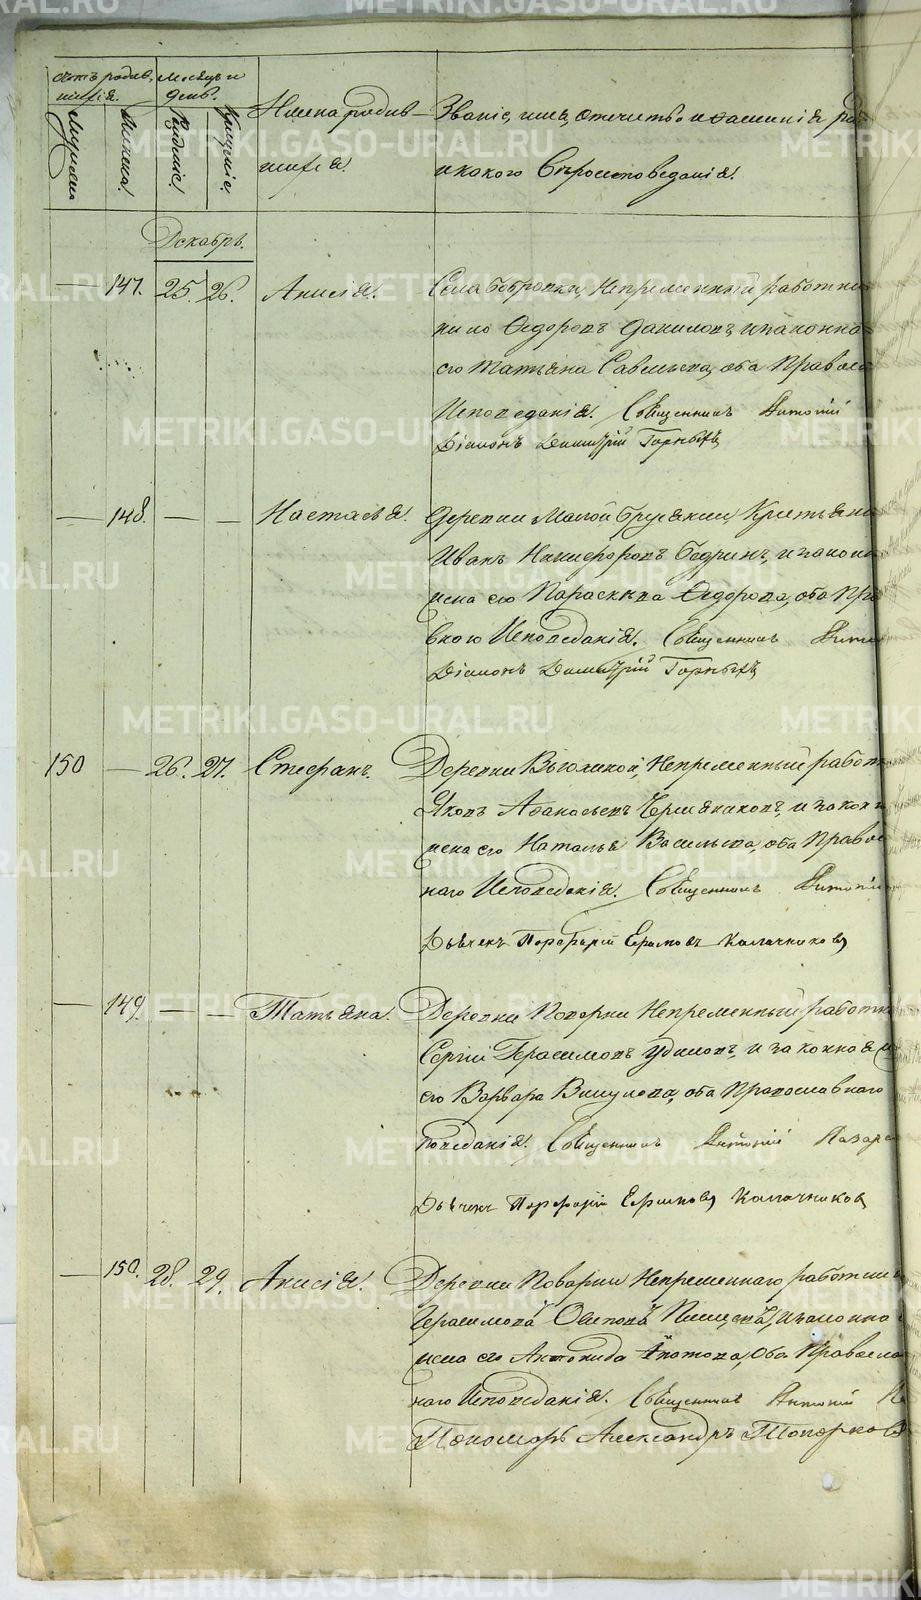 Счетъ родив- Мѣсяцъ и
шихся. день.
Мужеска Женска. Рожденіе. Крещеніе.
Имена родив-
шихся.
Званіе, имя, отчество и фамилія ро
и какого Вѣроисповеданія.
Декабрь.
— 147. 25. 26. Анисія. Села Бобровки, Непременный работни
Федоровъ Даниловъ, и законна
его Татьяна Савельева, оба Правосл
Исповеданія. Священникъ Антоній
Діаконъ Димитрій Горныхъ
— 148. — — Настасья. Деревни Малой Брусянки, Крестьянин
Иванъ Никифоровъ Бедринъ, и закон
жена его Параскева Федорова, оба Пра
вного Исповеданія. Священникъ Антон
Діаконъ Димитрій Горныхъ
150 — 26. 27. Стефанъ. Деревни Непременный работн
Яковъ Афанасьевъ Чермяниновъ, и закон
жена его Наталья Васильева, оба Правос
наго Исповеданія. Священникъ Антоній
Дьячекъ Порфирій Ермиловъ Калачниковъ
— 149. — — Татьяна. Деревни Поварни Непременный работн
Сергій Герасимовъ Удиловъ, и законная ж
его Варвара Викулова, оба Православнаго
поведанія. Священникъ Антоній Лазаре
Дьячекъ Порфирій Калачниковъ
— 150. 28. 29. Анисія. Деревни Поварни Непременнаго работни
Герасимова Осиповъ и законна
жена его Антонида оба Правосла
наго Исповеданія. Священникъ Антоній Ла
Пономарь Александръ Топорков
METRIKI.GASO-URAL.RU